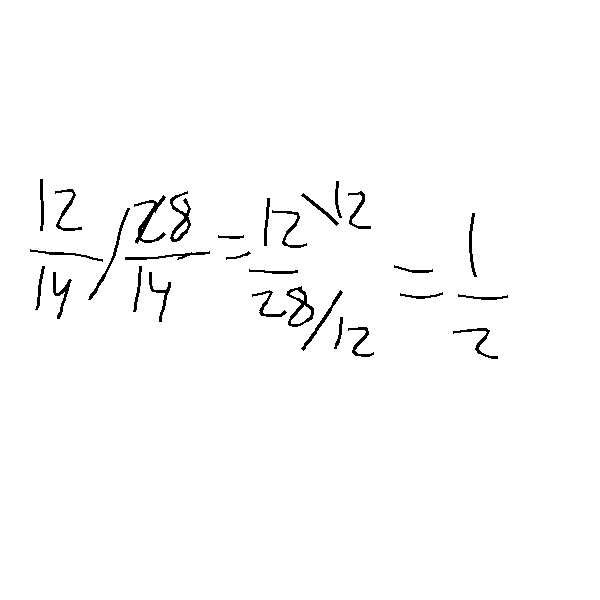 12/14 / 28/14 = 12\12/28/12 = 1/2